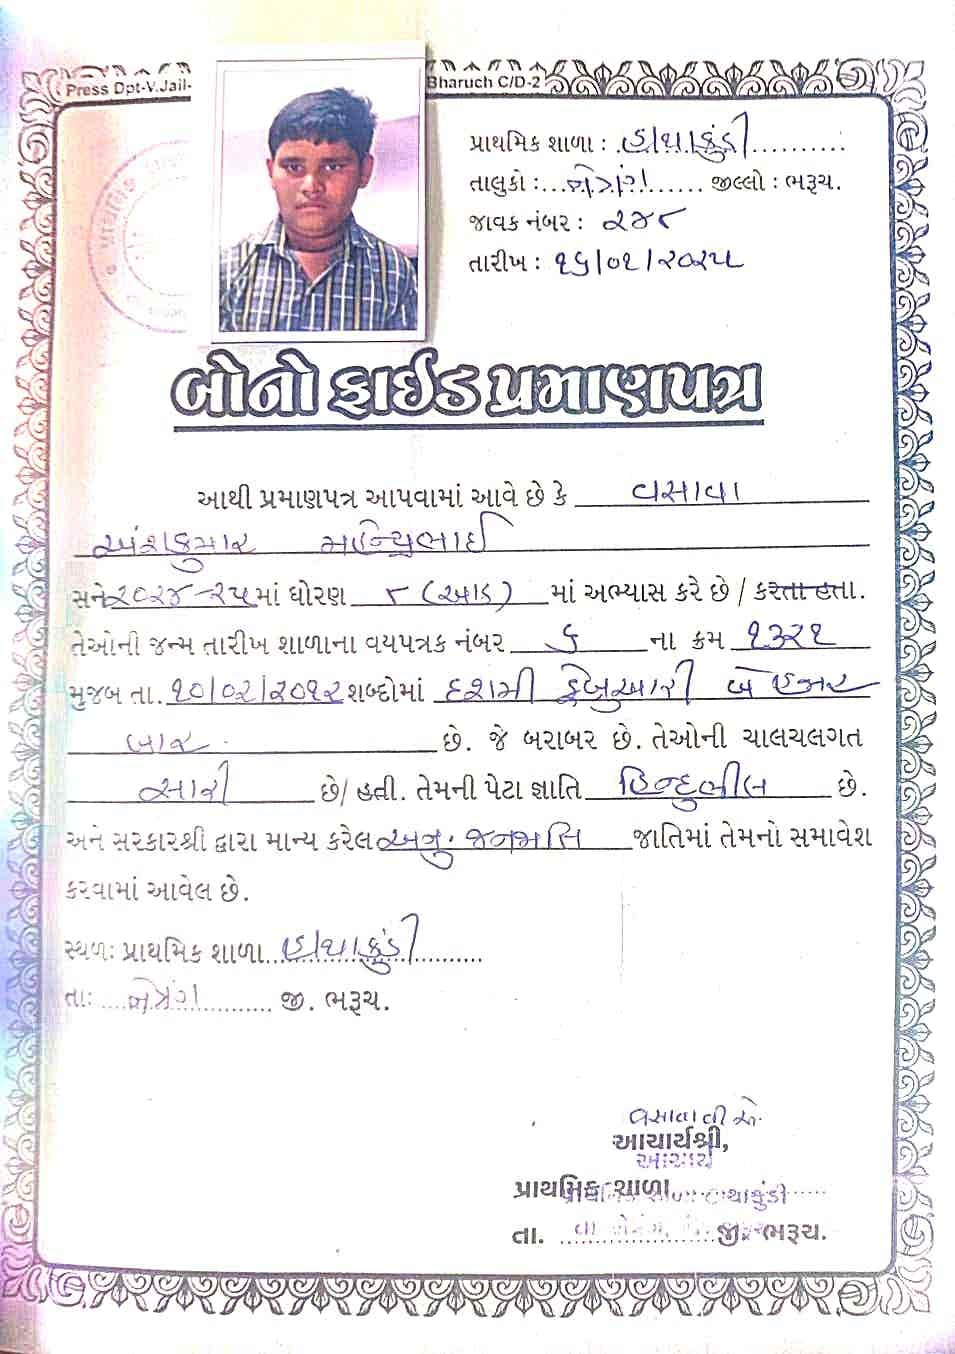 Press Dpt-V.Jail- Bharuch C/D-2
પ્રાથમિક શાળા : હાથાકુંડી
તાલુકો : નેત્રંગ જીલ્લો : ભરૂચ.
જાવક નંબર : ૨૪૮
તારીખ : ૧૬/૦૧/૨૦૨૫
બોનોફાઈડ પ્રમાણપત્ર
આથી પ્રમાણપત્ર આપવામાં આવે છે કે વસાવા
અંશકુમાર
સને ૨૦૨૪-૨૫ માં ધોરણ ૮ (આઠ) માં અભ્યાસ કરે છે / કરતા હતા.
તેઓની જન્મ તારીખ શાળાના વયપત્રક નંબર ૬ ના ક્રમ ૧૩૨૧
મુજબ તા. ૧૦/૦૨/૨૦૧૨ શબ્દોમાં દશમી ફેબ્રુઆરી બે હજાર
બાર છે. જે બરાબર છે. તેઓની ચાલચલગત
સારી છે/ હતી. તેમની પેટા જ્ઞાતિ હિન્દુભીલ છે.
અને સરકારશ્રી દ્વારા માન્ય કરેલ અનુ. જનજાતિ જાતિમાં તેમનો સમાવેશ
કરવામાં આવેલ છે.
સ્થળ: પ્રાથમિક શાળા હાથાકુંડી
તા: નેત્રંગ જી. ભરૂચ.
આચાર્યશ્રી,
આચાર્ય
પ્રાથમિક શાળા
પ્રાથમિક શાળા હાથાકુંડી
તા. જી. ભરૂચ.